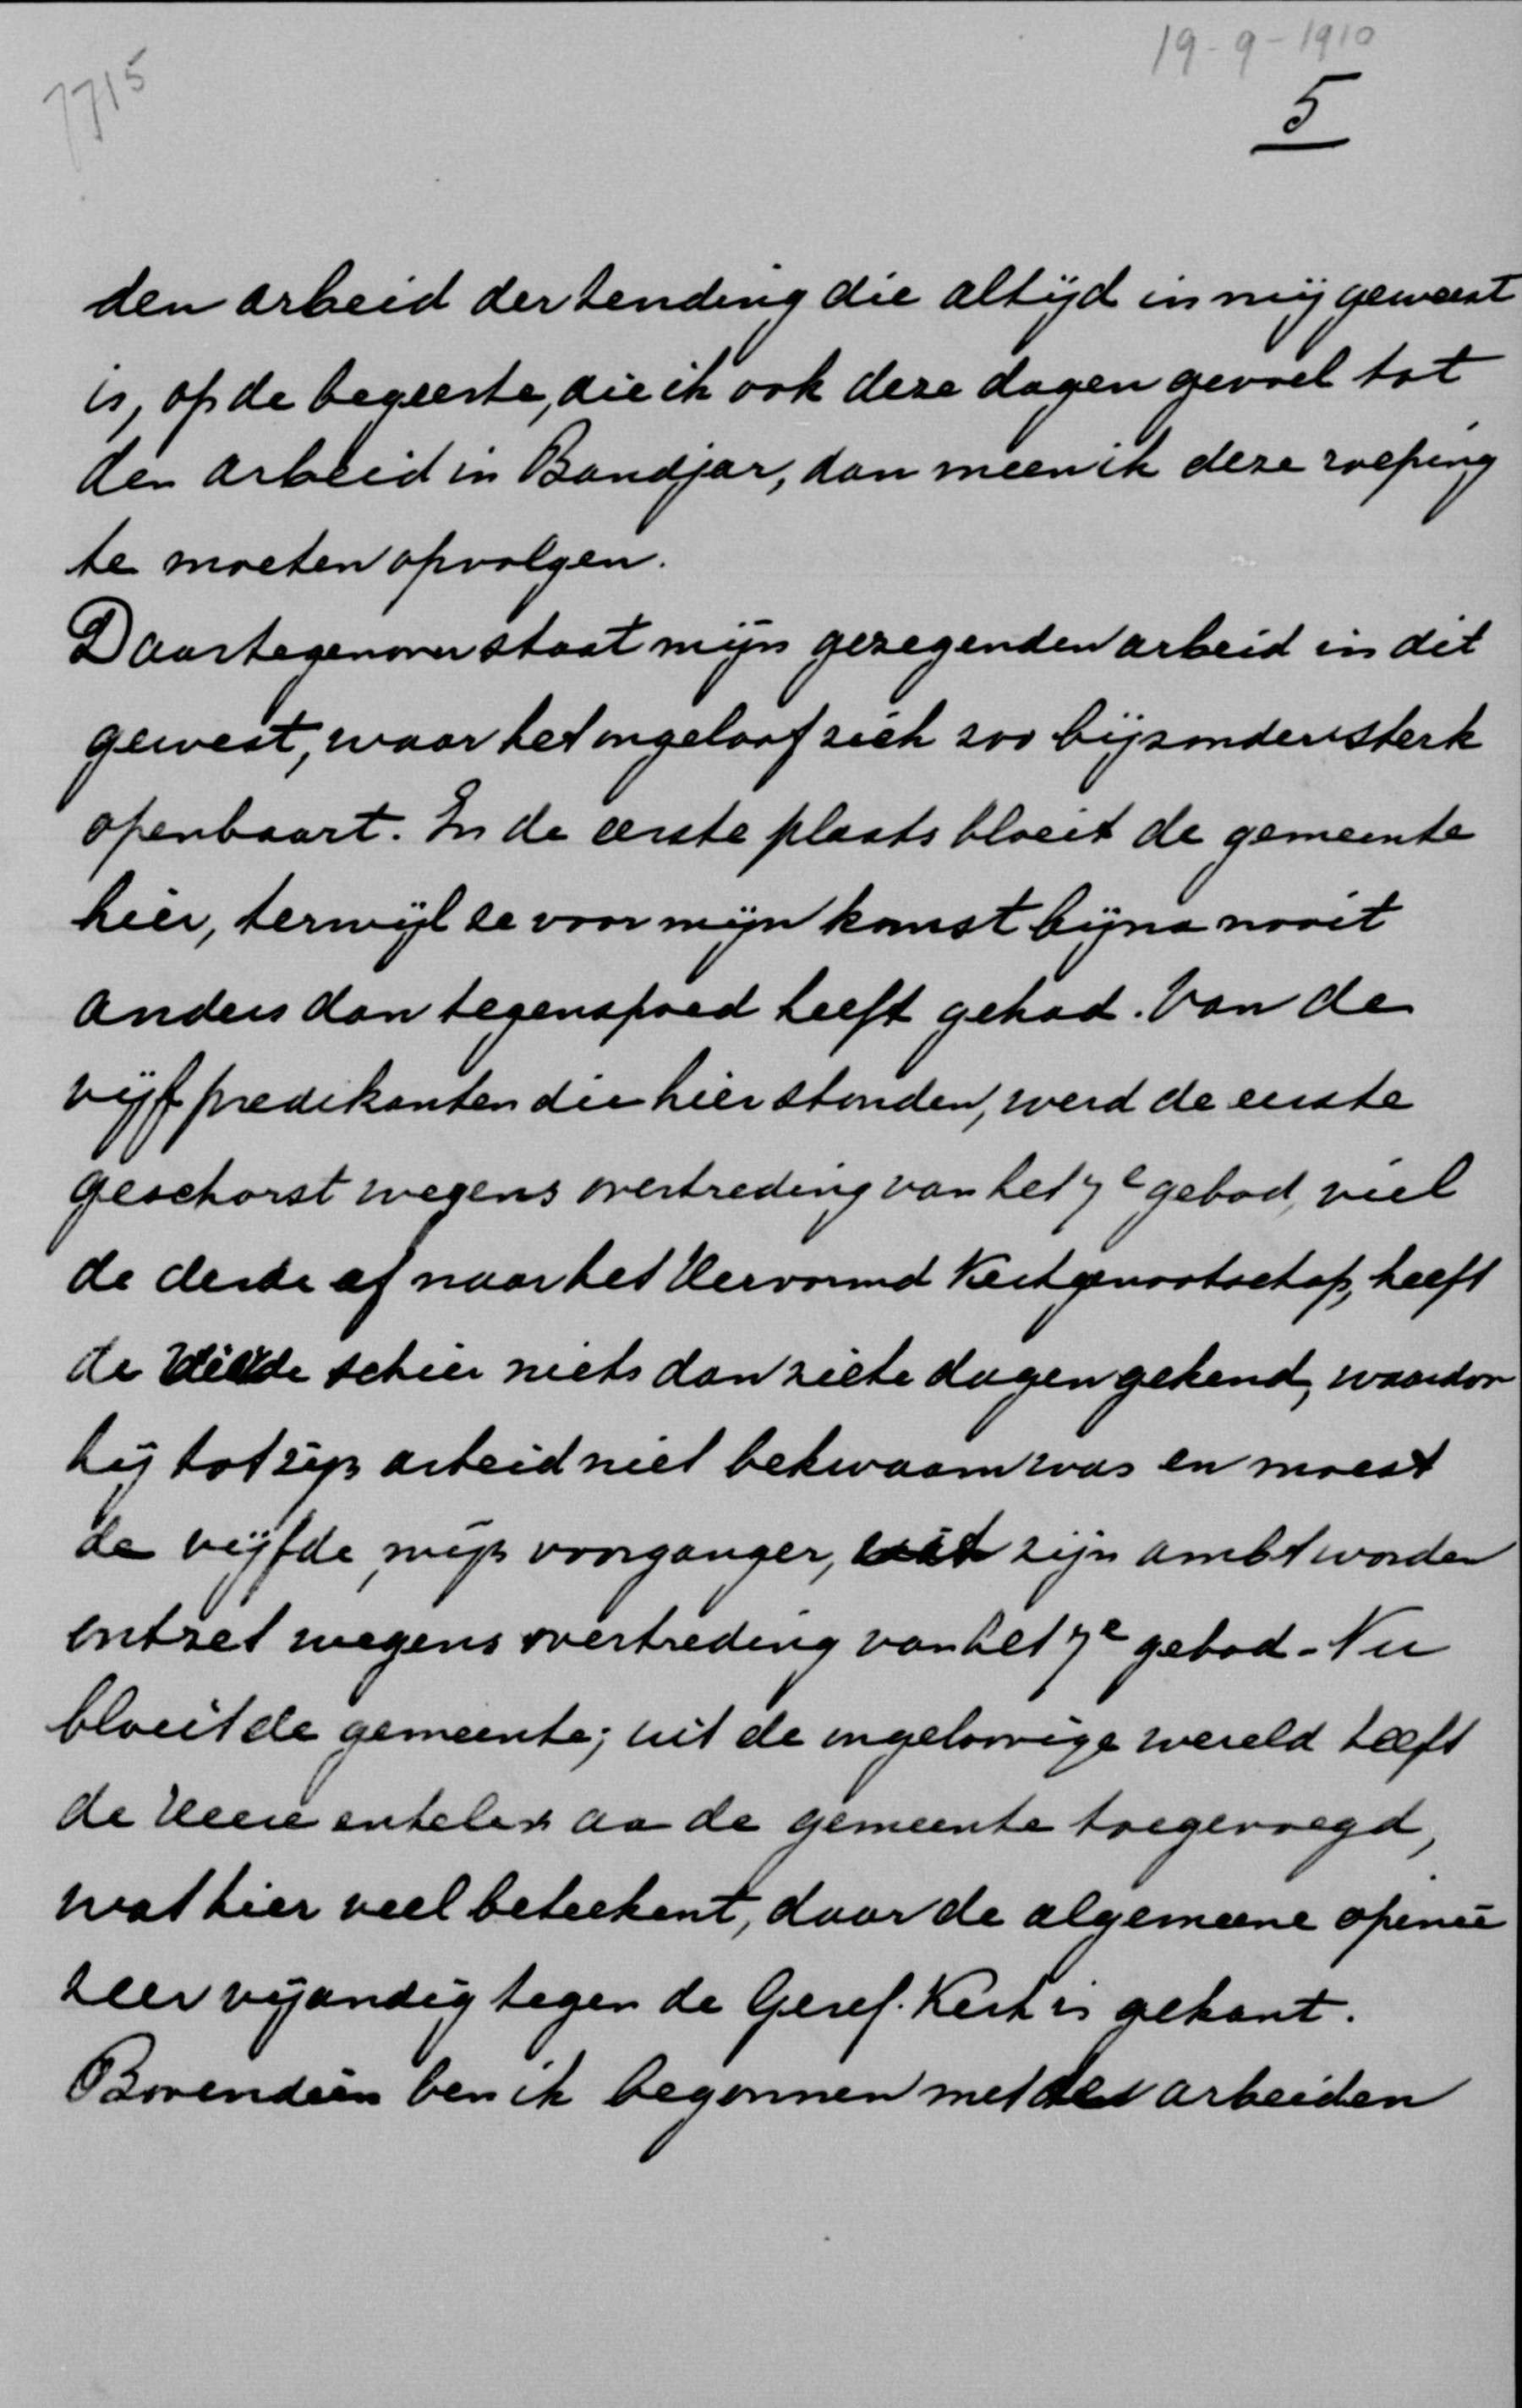 19-9-1910
7715
5
den arbeid der zending die altijd in mij geweest
is, op de begeerte, die ik ook deze dagen gevoel tot
den arbeid in Bandjar, dan meen ik deze roeping
te moeten opvolgen.
Daartegenover staat mijn gezegenden arbeid in dit
gewest, waar het ongeloof zich zoo bijzonder sterk
openbaart. In de eerste plaats bloeit de gemeente
hier, terwijl ze voor mijn komst bijna nooit
anders dan tegenspoed heeft gehad. Van de
vijf predikanten die hier stonden, werd de eerste
geschorst wegens overtreding van het 7e gebod, viel
de derde af naar het Hervormd Kerkgenootschap, heeft
de vierde schier niets dan ziekte dagen gekend, waardoor
hij tot zijn arbeid niet bekwaam was en moest
de vijfde, mijn voorganger, uit zijn ambt worden
ontzet wegens overtreding van het 7e gebod. Nu
bloeit de gemeente; uit de ongelovige wereld heeft
de Heere enkelen aa de gemeente toegevoegd,
wat hier veel beteekent, daar de algemeene opinie
zeer vijandig tegen de Geref. Kerk is gekant.
Bovendien ben ik begonnen met den arbeiden